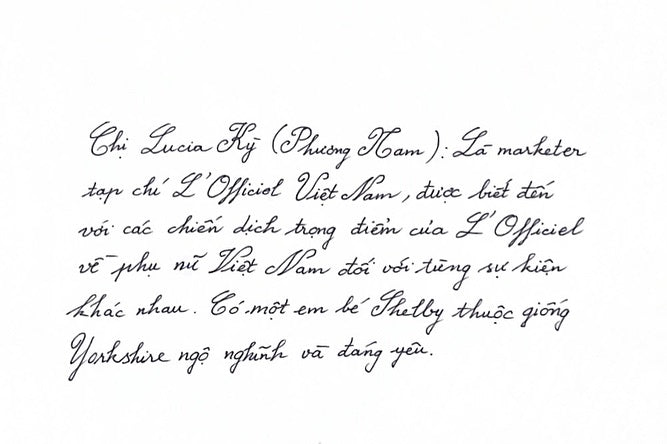 Chị Lucia Kỳ (Phương Nam): Là marketer
tạp chí L'Officiel Việt Nam, được biết đến
với các chiến dịch trọng điểm của L'Officiel
về phụ nữ Việt Nam đối với từng sự kiện
khác nhau. Có một em bé Shelby thuộc giống
Yorkshire ngộ nghĩnh và đáng yêu.